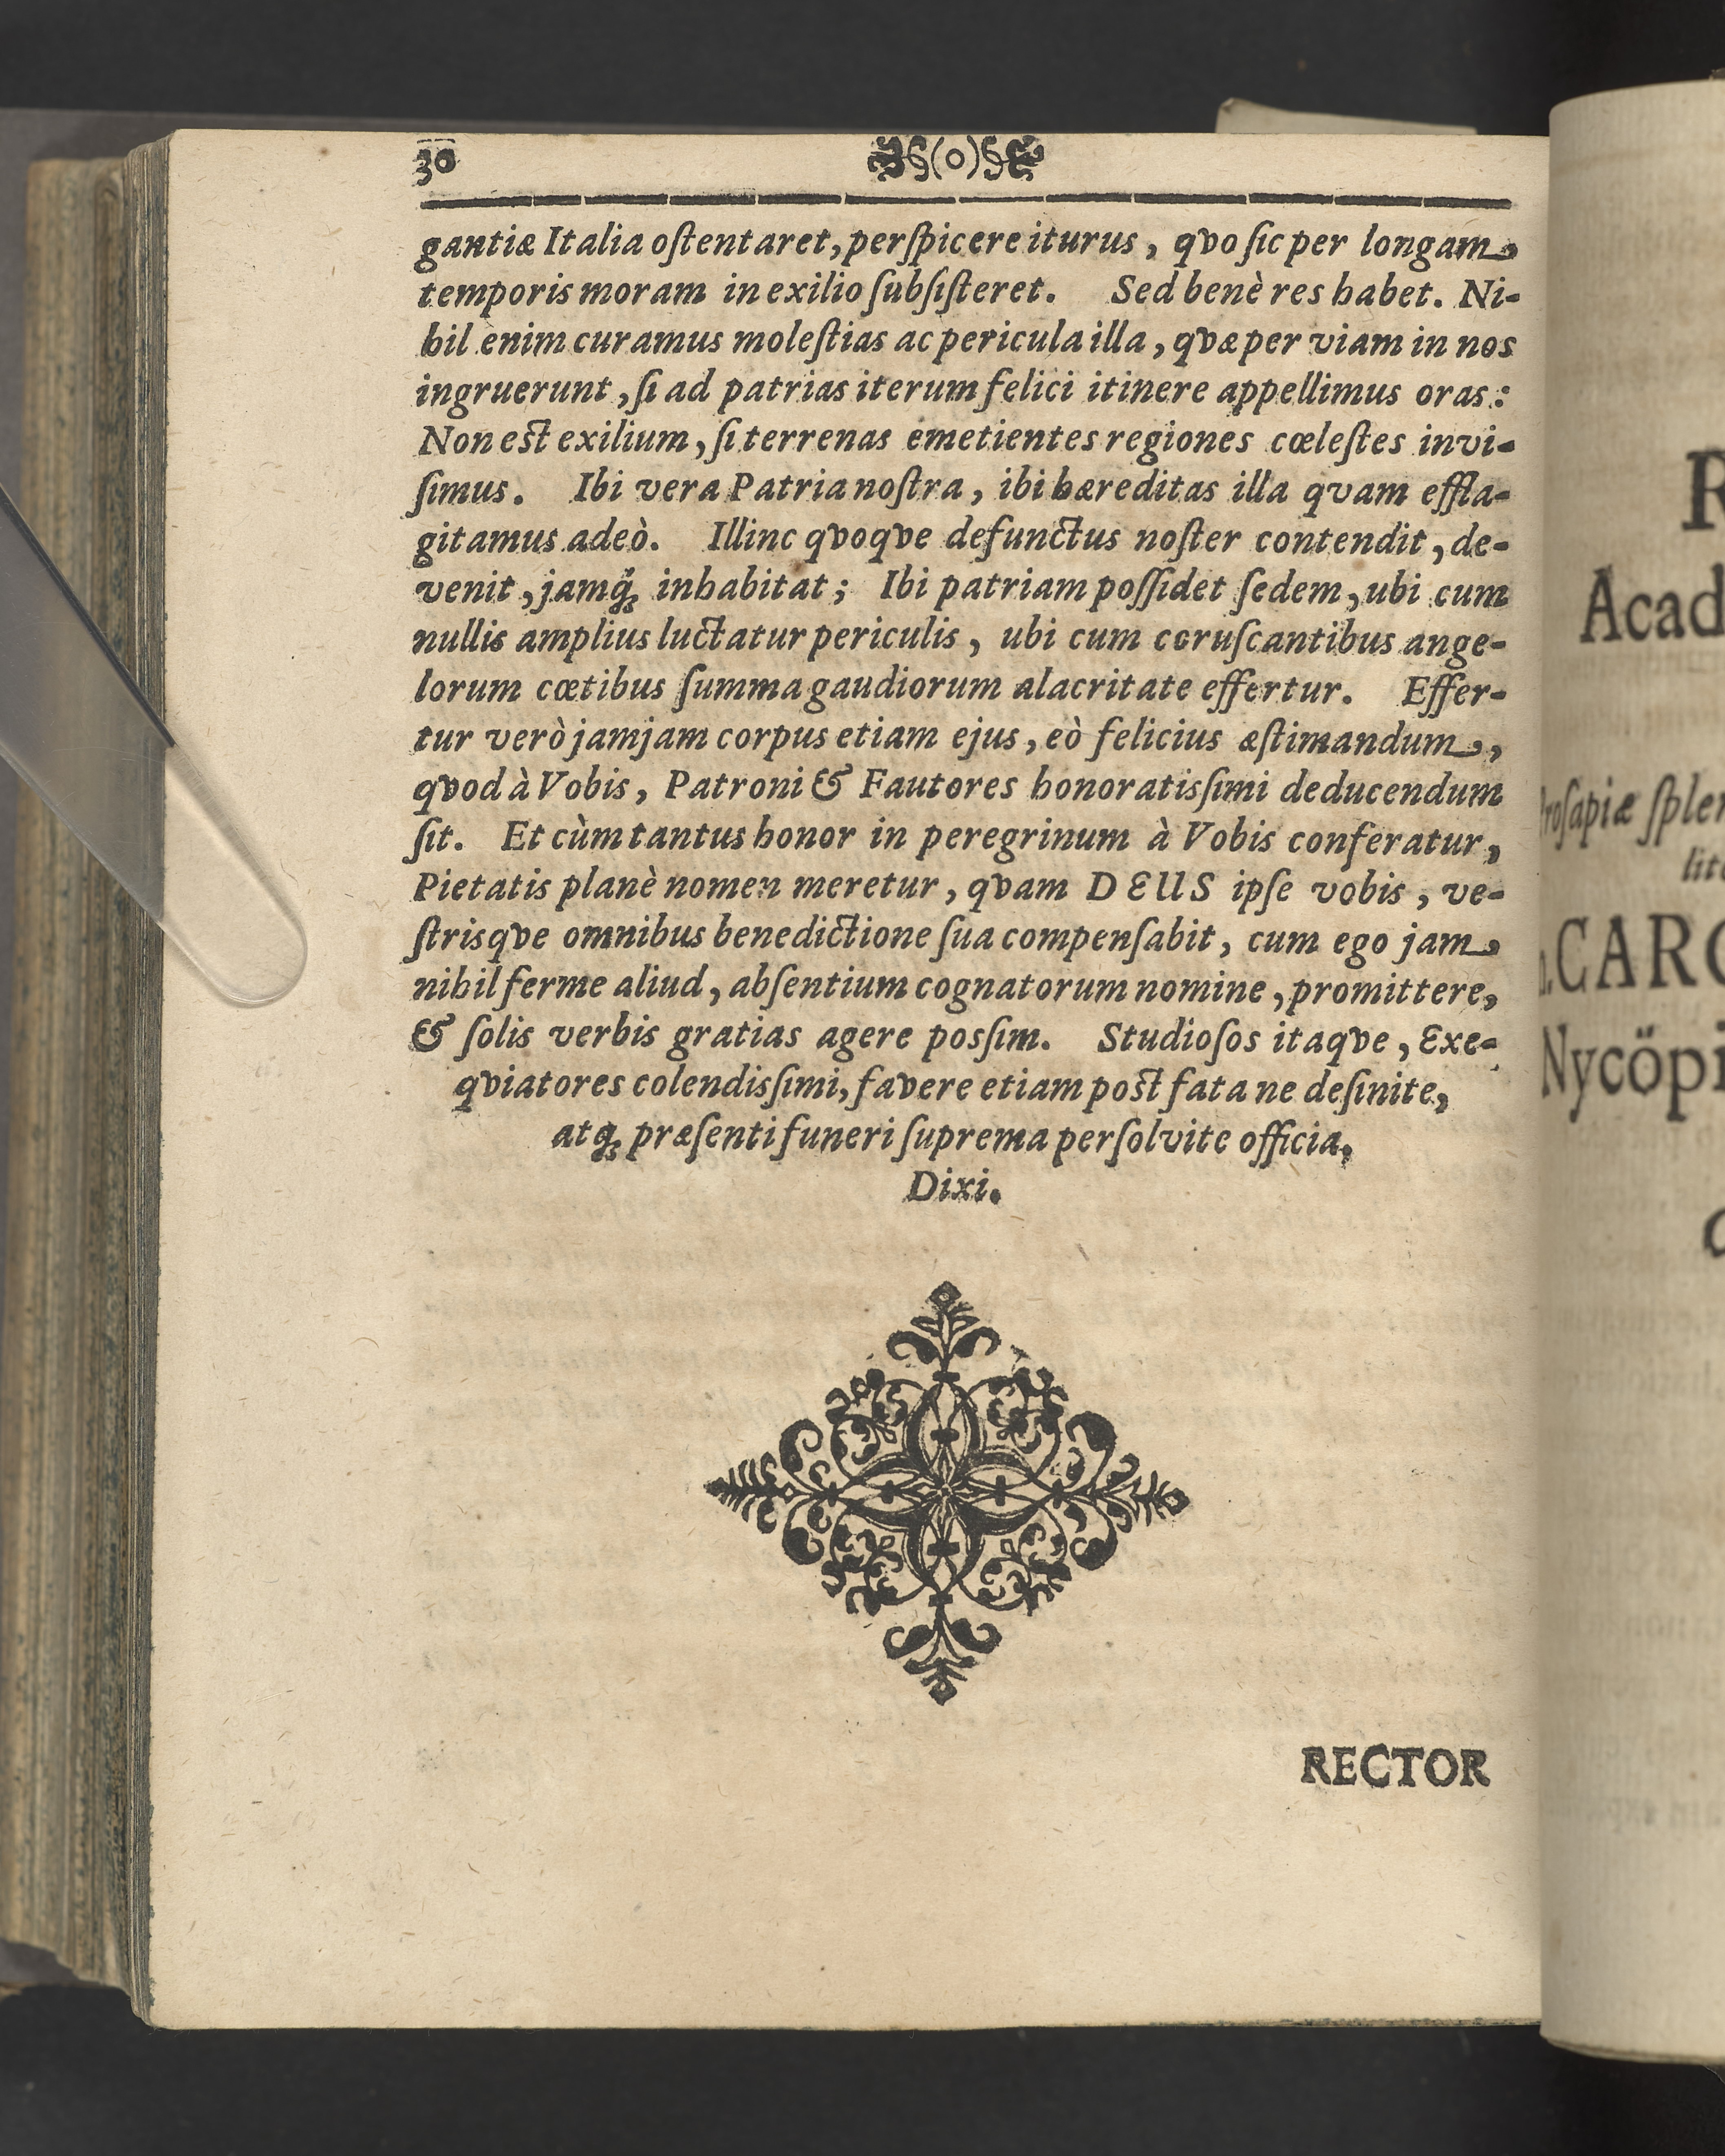 30 (o)
gantiæ Italia oſtentaret, perſpicere iturus, qvo ſic per longam
temporis moram in exilio ſubſiſteret. Sed benè res habet. Ni-
hil enim curamus moleſtias ac pericula illa, qvæ per viam in nos
ingruerunt, ſi ad patrias iterum felici itinere appellimus oras:
Non eſt exilium, ſi terrenas emetientes regiones cœleſtes invi-
ſimus. Ibi vera Patria noſtra, ibi hæreditas illa qvam effla-
gitamus adeò. Illinc qvoqve defunctus noſter contendit, de-
venit, jamq́; inhabitat; Ibi patriam poſſidet ſedem, ubi cum
nullis amplius luctatur periculis, ubi cum coruſcantibus ange-
lorum cœtibus ſumma gaudiorum alacritate effertur. Effer-
tur verò jamjam corpus etiam ejus, eò felicius æſtimandum,
qvod à Vobis, Patroni & Fautores honoratisſimi deducendum
ſit. Et cùm tantus honor in peregrinum à Vobis conferatur,
Pietatis planè nomen meretur, qvam DEUS ipſe vobis, ve-
ſtrisqve omnibus benedictione ſua compenſabit, cum ego jam
nihil ferme aliud, abſentium cognatorum nomine, promittere,
& ſolis verbis gratias agere posſim. Studioſos itaqve, Exe-
qviatores colendisſimi, favere etiam poſt fata ne deſinite,
atq; præſenti funeri ſuprema perſolvite officia.
Dixi.
RECTOR
R
Acad
litt
CARO
Nycöpi